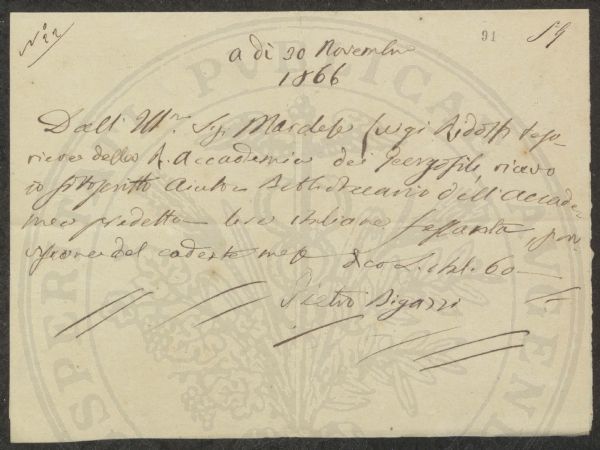 N° 22
91
59
a di 30 Novembre
1866
Dall' Ill.mo Sig. Marchese Luigi Ridolfi teso-
riere della R. Accademia dei Georgofili, ricevo
io sottoscritto Aiuto Bibliotecario dell'Accade-
mia predetta Lire italiane sessanta, prov
visione del cadente mese dico L. ital. 60 —
Pietro Bigazzi